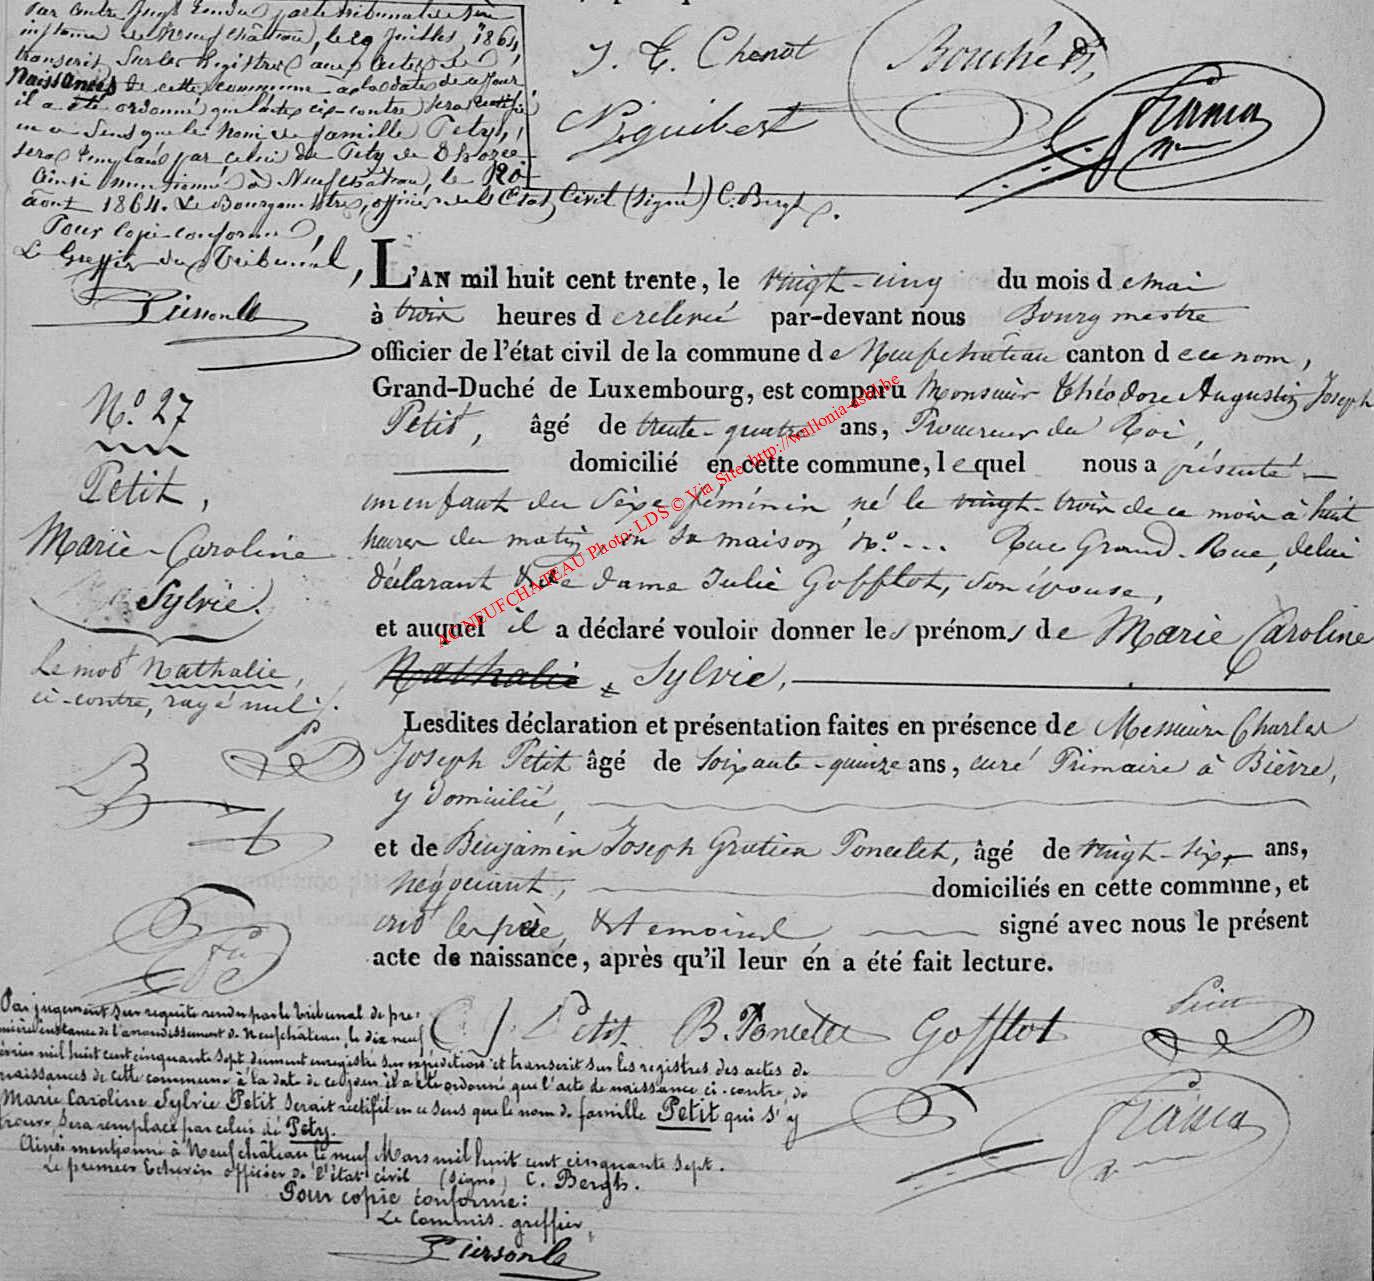 Par contre Jugt rendu par le tribunal de 1ère
instance de Neufchâteau, le 29 Juillet 1864,
transcrit sur les Registres aux actes de
Naissances de cette commune à la date de ce jour
il a été ordonné que l'acte ci-contre sera rectifié
en ce sens que le nom de famille Pety,
sera remplacé par celui de Pety de Thozée
Ainsi mentionné à Neufchâteau, le 20
août 1864. Le Bourgmestre, officier de l'Etat Civil (signé) C. Bergh.
Pour copie conforme,
Le Greffier du Tribunal,
Piersonle
J. C. Chenot
Bouché
N guibert
L'AN mil huit cent trente, le vingt-cinq du mois de mai
à trois heures de relevée par-devant nous Bourgmestre
officier de l'état civil de la commune de Neufchâteau canton de ce nom,
Grand-Duché de Luxembourg, est comparu Monsieur Théodore Augustin Joseph
Petit, âgé de trente-quatre ans, Procureur du Roi,
domicilié en cette commune, lequel nous a présenté
un enfant du sexe féminin, né le vingt-trois de ce mois à huit
heures du matin en sa maison No. ... Rue Grand-Rue, de lui
déclarant & de dame Julie Gofflot, son épouse,
et auquel il a déclaré vouloir donner les prénoms de Marie Caroline
Nathalie Sylvie,
Lesdites déclaration et présentation faites en présence de Messieurs Charles
Joseph Petit âgé de soixante-quinze ans, curé Primaire à Bièvre,
y domicilié,
et de Benjamin Joseph Gratien Poncelet, âgé de vingt-six ans,
négociant, domiciliés en cette commune, et
ont les père, & temoins signé avec nous le présent
acte de naissance, après qu'il leur en a été fait lecture.
No. 27
Petit,
Marie-Caroline
Sylvie.
Le mot Nathalie,
ci-contre, rayé nul
C J Petit. B. Poncelet Gofflot Petit
Par jugement sur requête rendu par le tribunal de pre-
mière instance de l'arrondissement de Neufchâteau, le dix neuf
février mil huit cent cinquante sept dument enregistré sur expédition et transcrit sur les registres des actes de
naissances de cette commune à la date de ce jour il a été ordonné que l'acte de naissance ci-contre, de
Marie Caroline Sylvie Petit serait rectifié en ce sens que le nom de famille Petit qui s'y
trouve, sera remplacé par celui de Pety.
Ainsi mentionné à Neufchâteau le neuf Mars mil huit cent cinquante sept.
Le premier Echevin officier de l'état civil (signé) C. Bergh.
Pour copie conforme:
Le Commis-greffier,
Piersonle
AGNEUFCHATEAU Photo: LDS © Via Site: http://wallonia-asbl.be